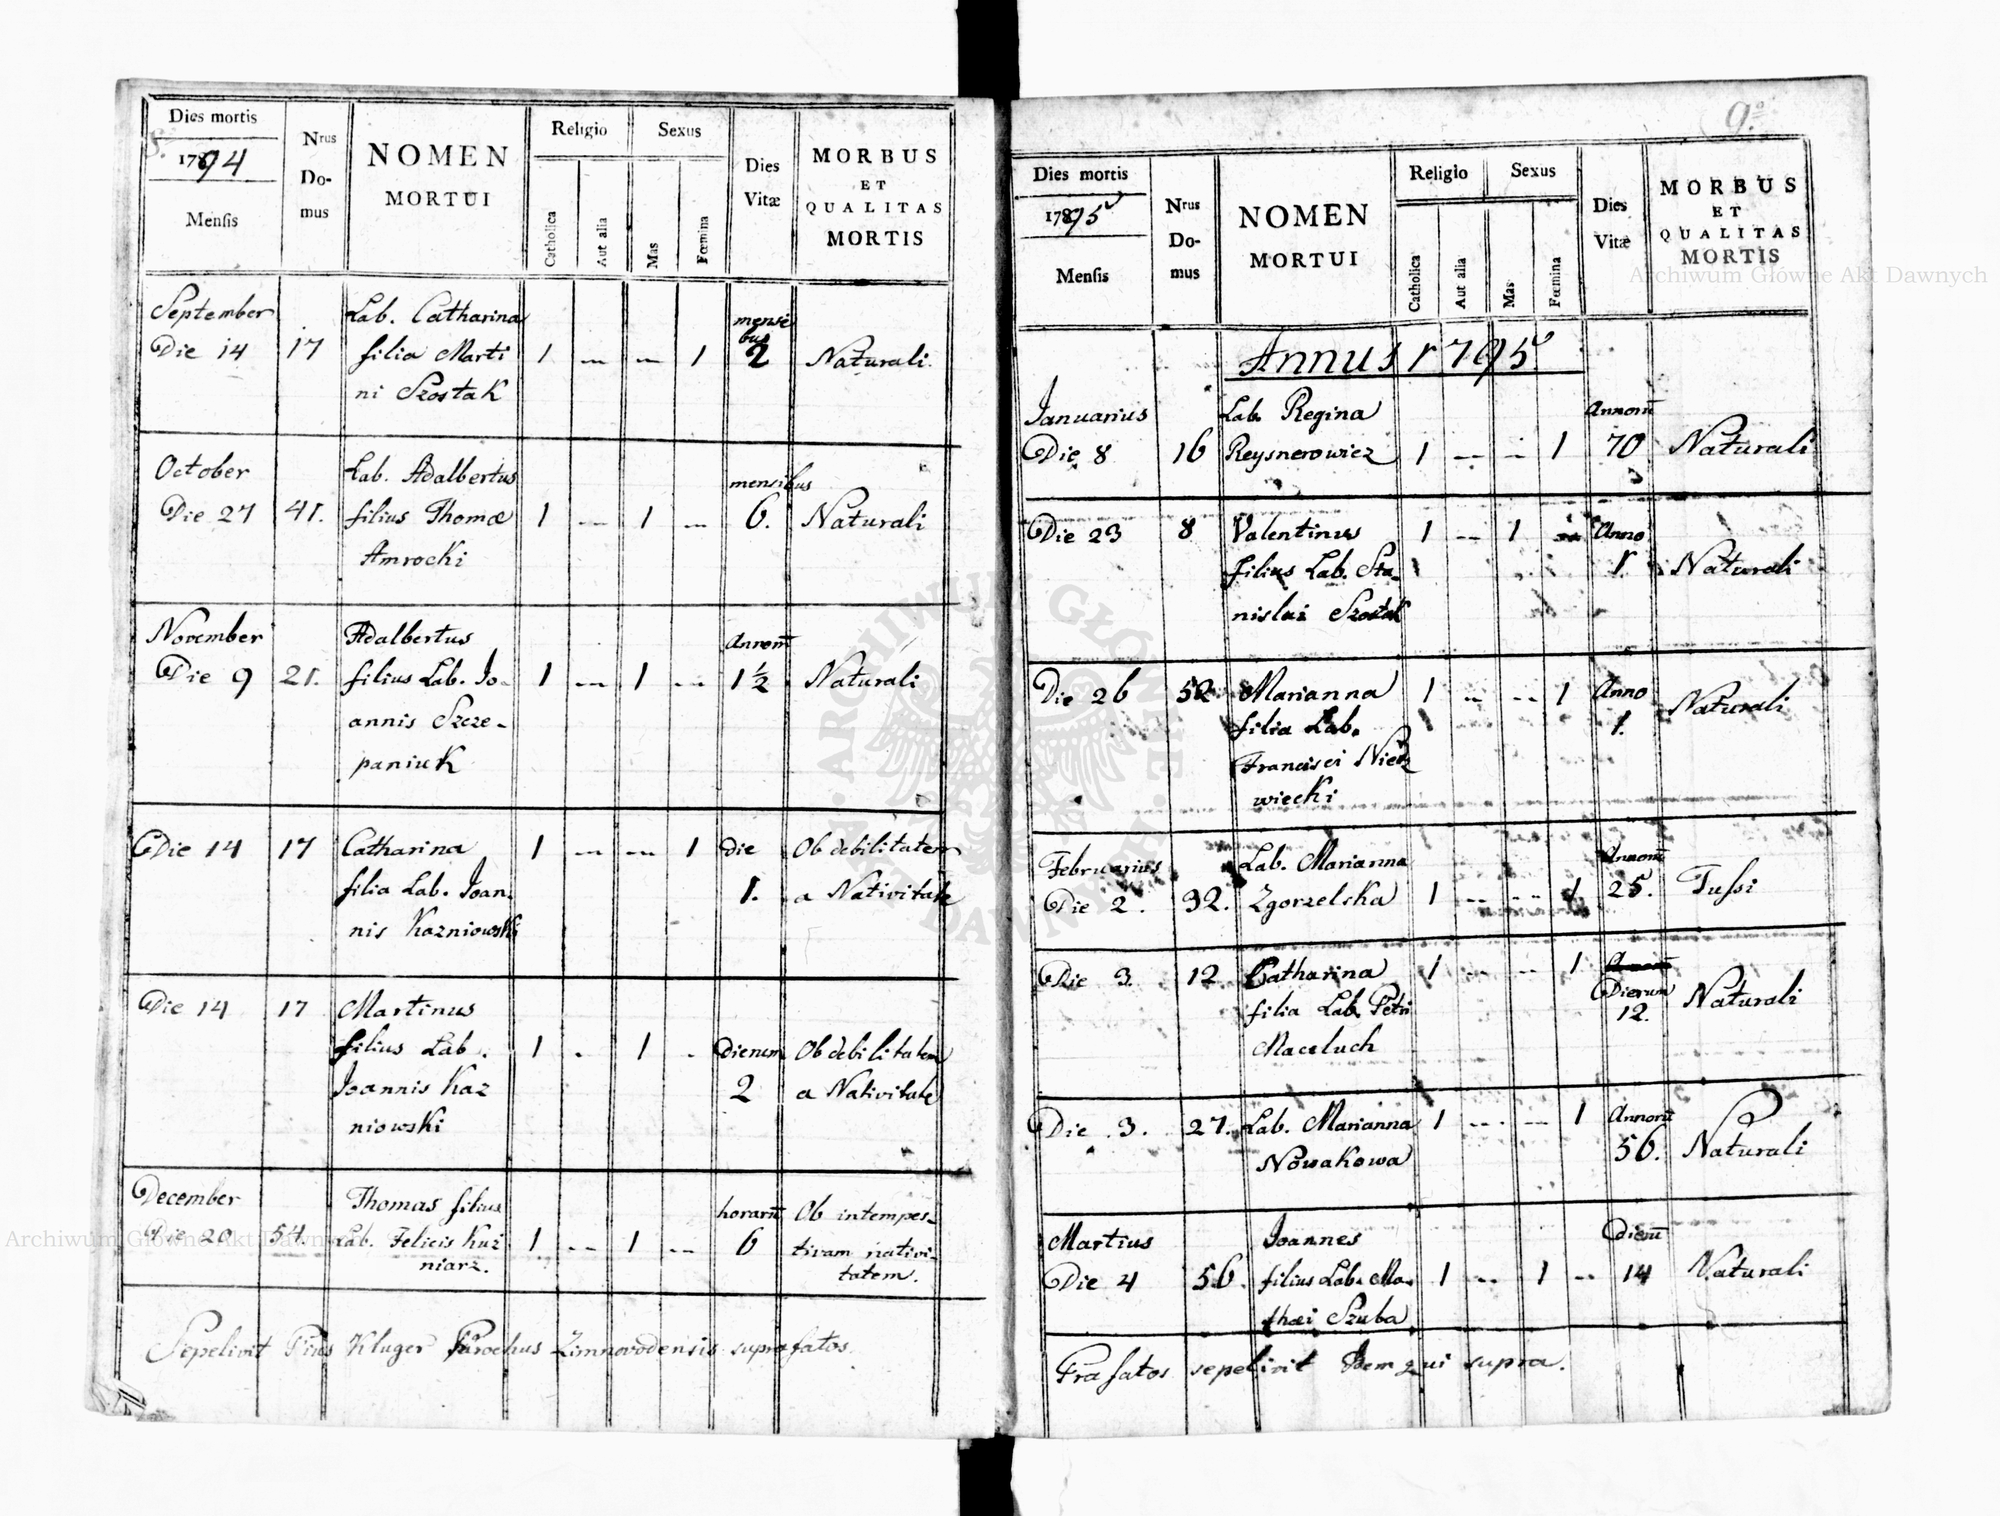 Dies mortis
1794
Mensis
Nrus
Do-
mus
NOMEN
MORTUI
Religio
Catholica
Aut alia
Sexus
Mas
Fœmina
Dies
Vitæ
MORBUS
ET
QUALITAS
MORTIS
September
Die 14 17
Lab. Catharina
filia Marti
ni Szostak
1 — — 1
mensi
bus
2
Naturali.
October
Die 27 41.
Lab. Adalbertus
filius Thomæ
Amrocki
1 — 1 —
mensibus
6.
Naturali
November
Die 9 21.
Adalbertus
filius Lab. Jo-
annis Szcze-
paniuk
1 — 1 —
Annorū
1½
Naturali
Die 14 17
Catharina
filia Lab. Joan.
nis Kazniowski
1 — — 1
die
1.
Ob debilitatem
a Nativitate
Die 14 17
Martinus
filius Lab.
Joannis Kaz
niowski
1 . 1 .
dierum
2
Ob debilitatem
a Nativitate
December
Die 20 54.
Thomas filius
Lab. Felicis Kuź
niarz.
1 — 1 —
horarū
6
Ob intempes-
tivam nativi-
tatem.
Sepelivit Pius Kluger Parochus Zimnovodensis suprafatos.
9.
Dies mortis
1795
Mensis
Nrus
Do-
mus
NOMEN
MORTUI
Religio
Catholica
Aut alia
Sexus
Mas
Fœmina
Dies
Vitæ
MORBUS
ET
QUALITAS
MORTIS
Annus 1795
Januarius
Die 8 16
Lab. Regina
Reysnerowicz
1 — — 1
Annorū
70
Naturali
Die 23 8
Valentinus
filius Lab. Sta-
nislai Szostak
1 — 1 —
Anno
1.
Naturali
Die 26 52
Marianna
filia Lab.
Francisci Niedz
wiecki
1 — — 1
Anno
1.
Naturali
Februarius
Die 2. 32.
Lab. Marianna
Zgorzelska
1 — — 1
Annorū
25.
Tussi
Die 3. 12
Catharina
filia Lab. Petri
Maceluch
1 — — 1
Dierum
12.
Naturali
Die 3. 27.
Lab. Marianna
Nowakowa
1 — — 1
Annorū
56.
Naturali
Martius
Die 4 56.
Joannes
filius Lab. Ma-
thæi Szuba
1 — 1 —
Dierū
14
Naturali
Præfatos sepelivit Idem qui supra.
Archiwum Główne Akt Dawnych
Archiwum Główne Akt Dawnych
ARCHIWUM GŁÓWNE AKT DAWNYCH